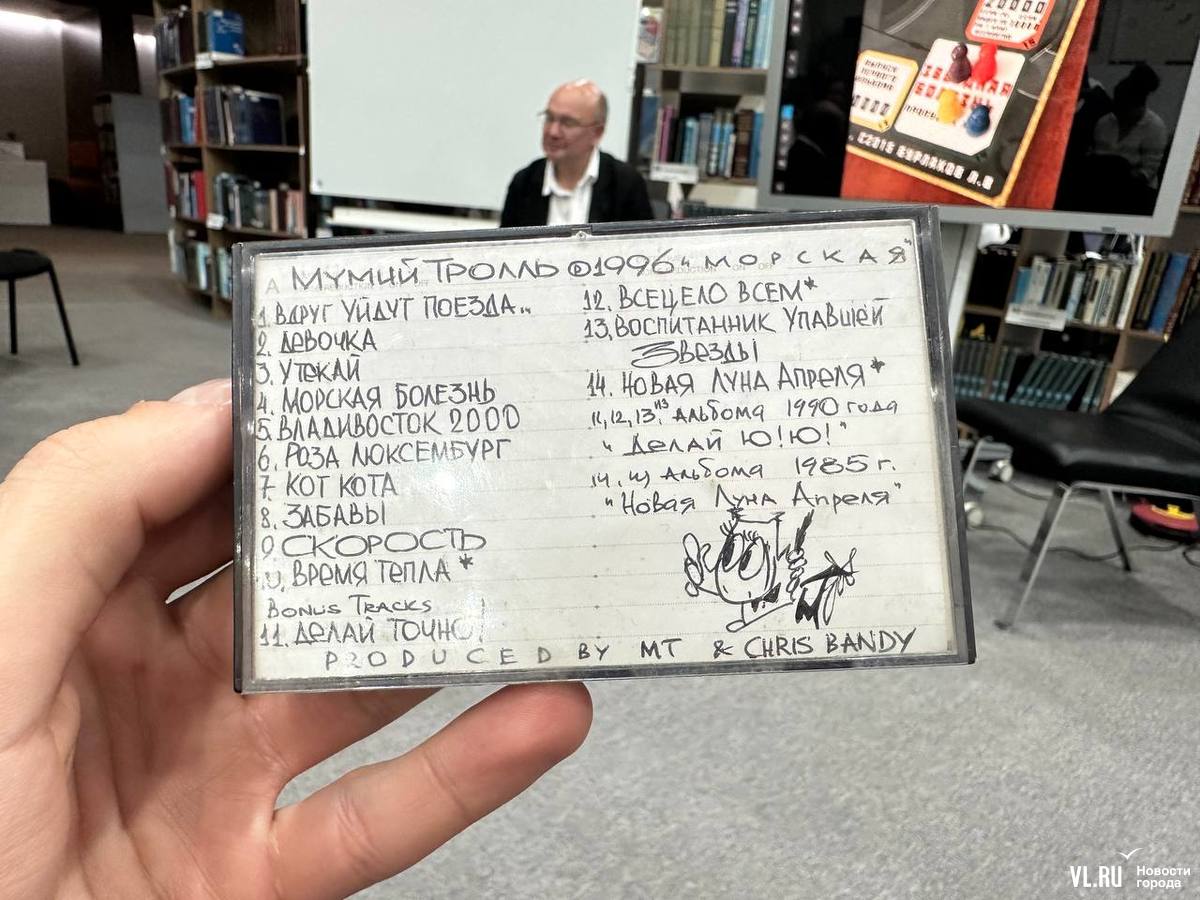 20000
0000
©2015 БУРЛАКОВ А.В
A МУМИЙ ТРОЛЛЬ ©1996 "МОРСКАЯ"
1. ВДРУГ УЙДУТ ПОЕЗДА..
2. ДЕВОЧКА
3. УТЕКАЙ
4. МОРСКАЯ БОЛЕЗНЬ
5. ВЛАДИВОСТОК 2000
6. РОЗА ЛЮКСЕМБУРГ
7. КОТ КОТА
8. ЗАБАВЫ
9 СКОРОСТЬ
10. ВРЕМЯ ТЕПЛА*
BONUS TRACKS
11. ДЕЛАЙ ТОЧНО!
12. ВСЕЦЕЛО ВСЕМ*
13. ВОСПИТАННИК УПАВШЕЙ
ЗВЕЗДЫ
14. НОВАЯ ЛУНА АПРЕЛЯ*
11, 12, 13. ИЗ АЛЬБОМА 1990 года
"ДЕЛАЙ Ю!Ю!"
14. из АЛЬБОМА 1985 г.
"Новая Луна Апреля"
PRODUCED BY MT & CHRIS BANDY
VL.RU Новости
города